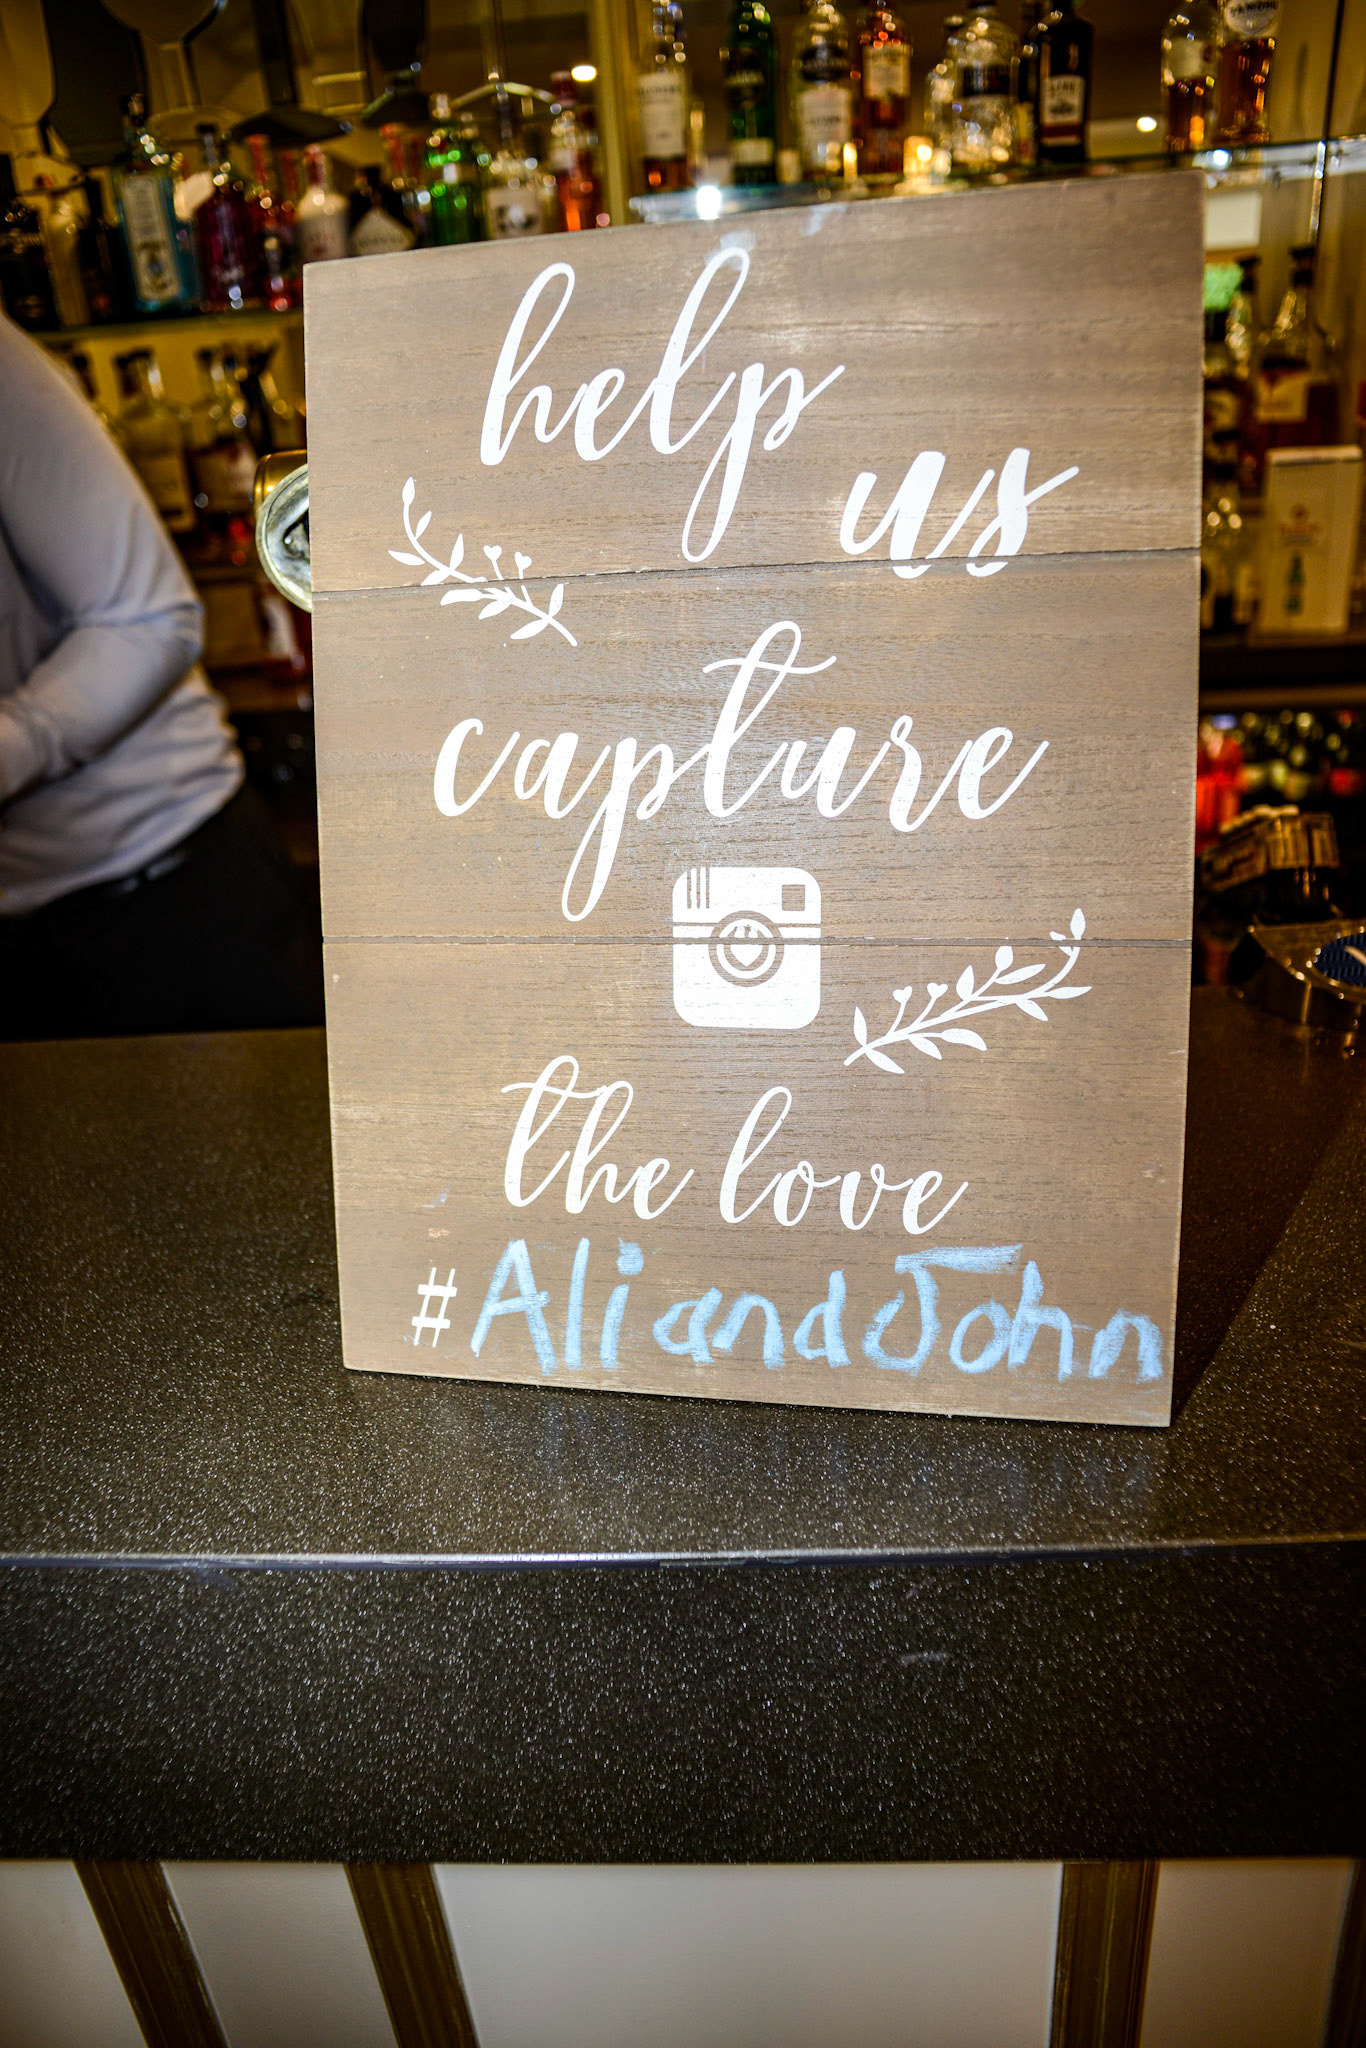 help
us
capture
the love
#AliandJohn